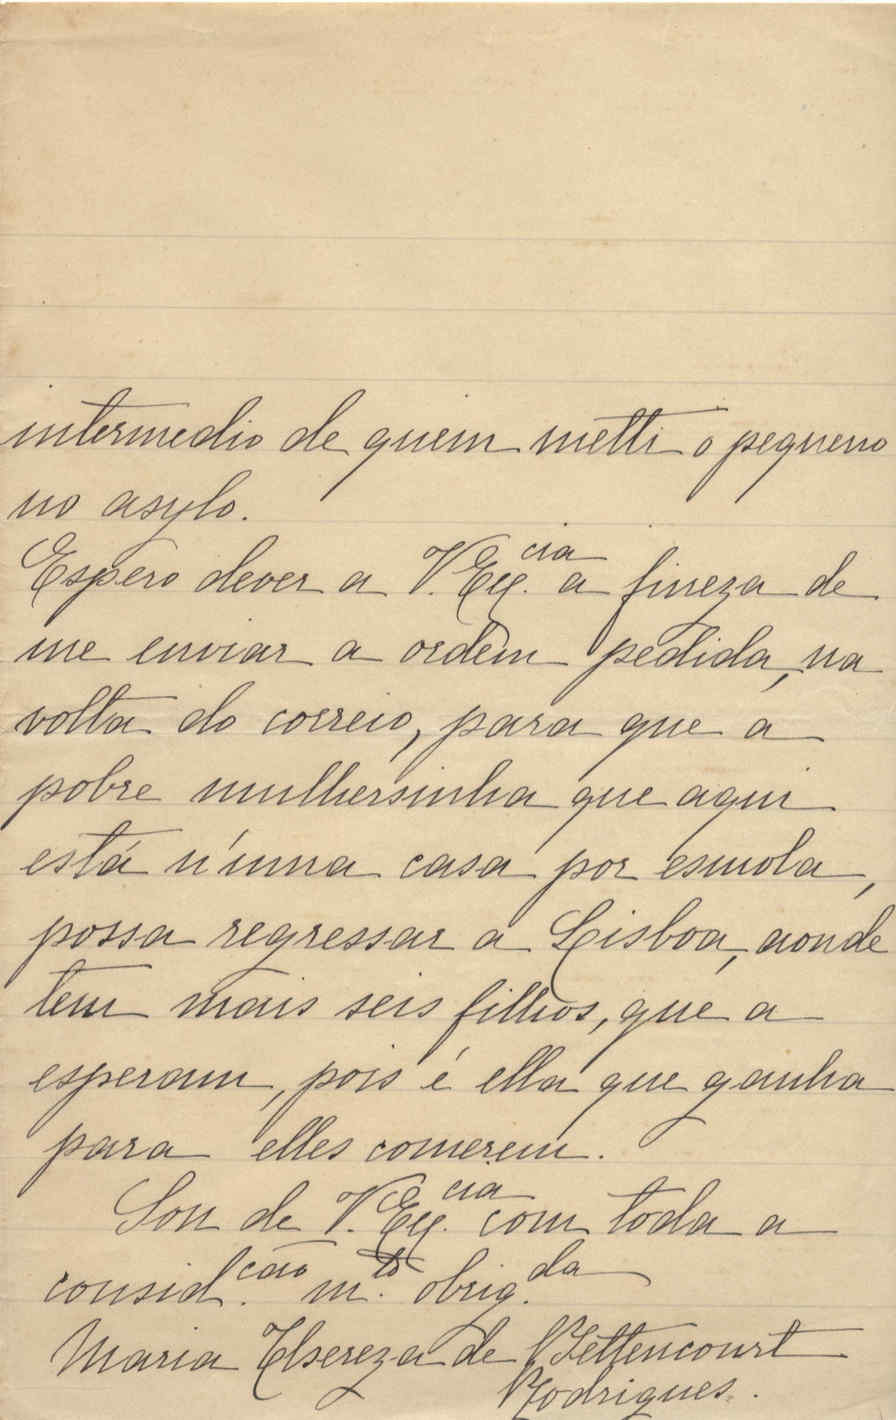 intermedio de quem metti o pequeno
no asylo.
Espero dever a V. Exc.cia a fineza de
me enviar a ordem pedida, na
volta do correio, para que a
pobre mulhersinha que aqui
está n'uma casa por esmola,
possa regressar a Lisboa, aonde
tem mais seis filhos, que a
esperam, pois é ella que ganha
para elles comerem.
Sou de V. Exc.cia com toda a
consid.cão m.to obrig.da
Maria Thereza de Bettencourt
Rodrigues.